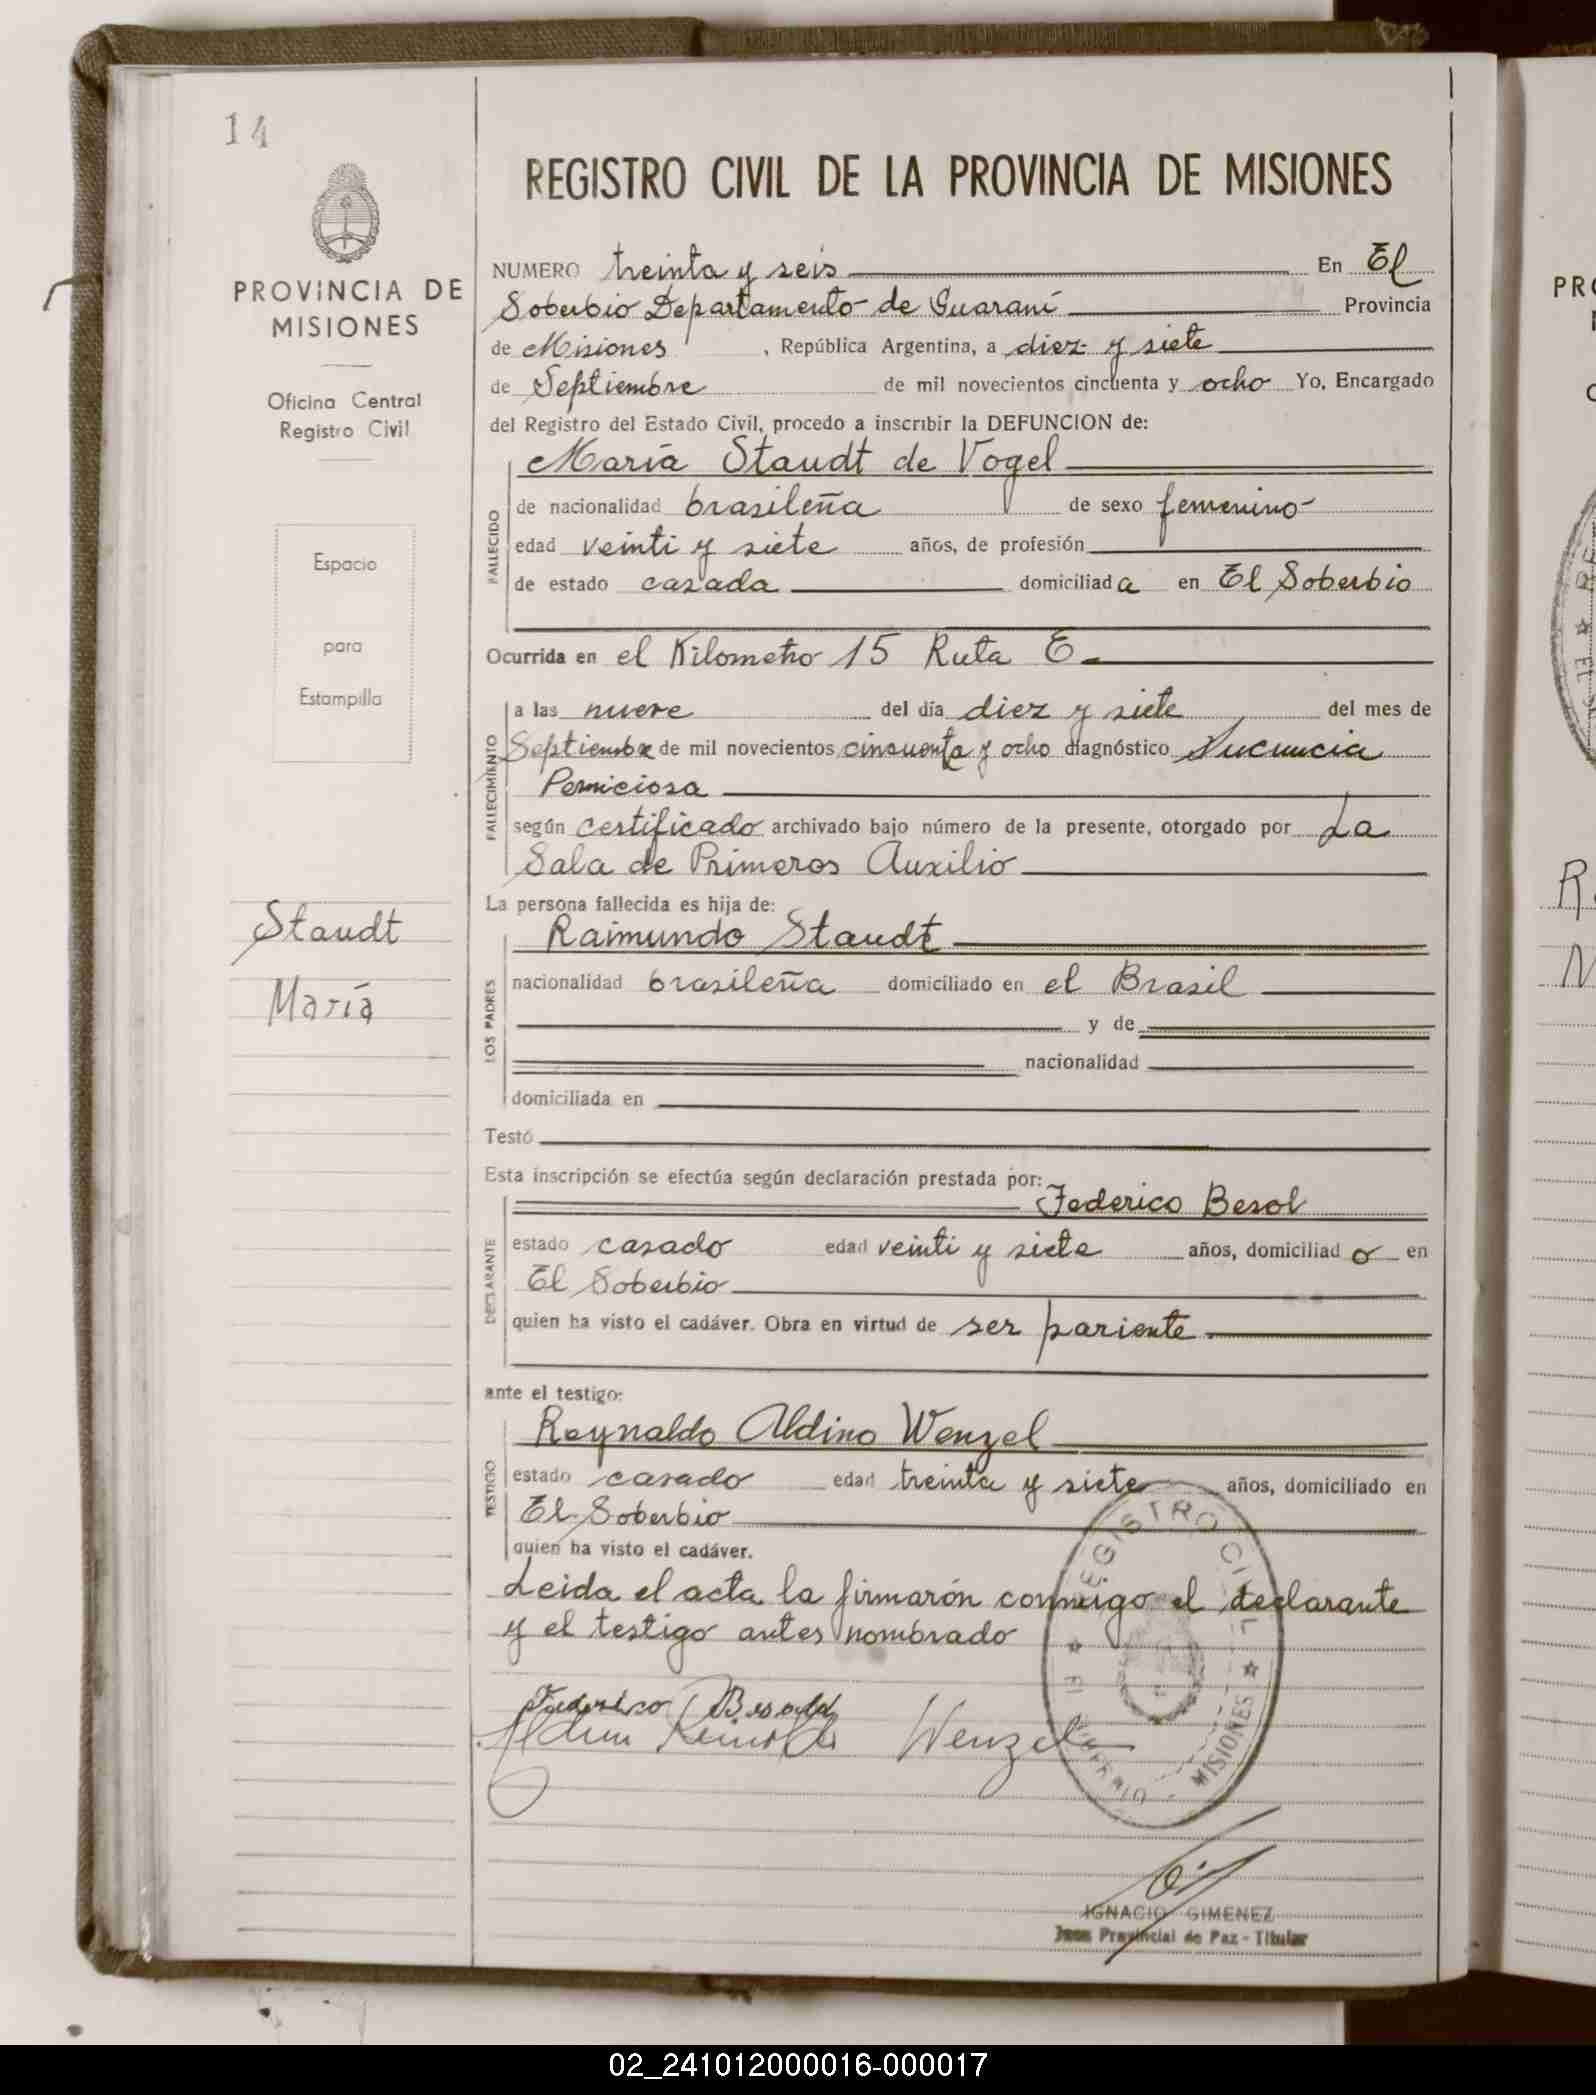 14
PROVINCIA DE
MISIONES
Oficina Central
Registro Civil
Espacio
para
Estampilla
Staudt
María
REGISTRO CIVIL DE LA PROVINCIA DE MISIONES
NUMERO treinta y seis En El
Soberbio Departamento de Guaraní Provincia
de Misiones, República Argentina, a diez y siete
de Septiembre de mil novecientos cincuenta y ocho Yo, Encargado
del Registro del Estado Civil, procedo a inscribir la DEFUNCION de:
María Staudt de Vogel
FALLECIDO
de nacionalidad brasileña de sexo femenino
edad veinti y siete años, de profesión
de estado casada domiciliada en El Soberbio
Ocurrida en el Kilometro 15 Ruta E.
FALLECIMIENTO
a las nueve del día diez y siete del mes de
Septiembre de mil novecientos cincuenta y ocho diagnóstico
Perniciosa
según certificado archivado bajo número de la presente, otorgado por La
Sala de Primeros Auxilio
La persona fallecida es hija de:
Raimundo Staudt
LOS PADRES
nacionalidad brasileña domiciliado en el Brasil
y de
nacionalidad
domiciliada en
Testó
Esta inscripción se efectúa según declaración prestada por:
Federico Besol
DECLARANTE
estado casado edad veinti y siete años, domiciliado en
El Soberbio
quien ha visto el cadáver. Obra en virtud de ser pariente.
ante el testigo:
Reynaldo Aldino Wenzel
TESTIGO
estado casado edad treinta y siete años, domiciliado en
El Soberbio
quien ha visto el cadáver.
Leida el acta la firmarón conmigo el declarante
y el testigo antes nombrado
REGISTRO CIVIL
EL SOBERBIO - MISIONES
Wenzel
IGNACIO GIMENEZ
Juez Provincial de Paz - Titular
02_241012000016-000017